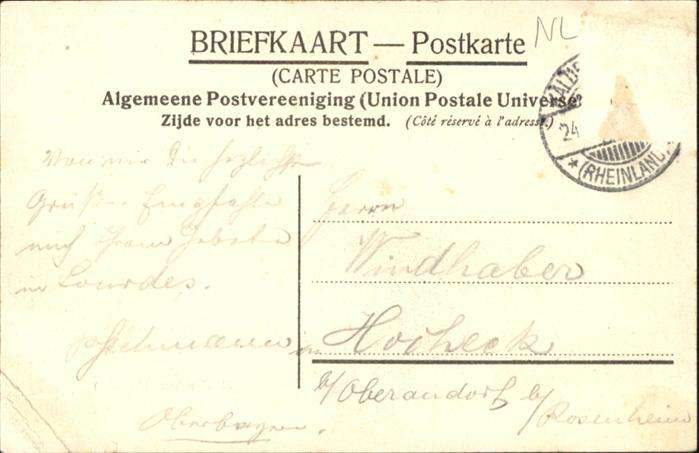 NL
BRIEFKAART — Postkarte
(CARTE POSTALE)
Algemeene Postvereeniging (Union Postale Universe
Zijde voor het adres bestemd. (Côté réservé à l'adresse.)
24
* (RHEINLAND)
Von mir die herzlichsten
Grüße Empfehle
mich Ihrem Gebete
in Lourdes.
Herrn
Windhaber
in Hocheck
b/Oberaudorf b/
Rosenheim
Oberbayern.